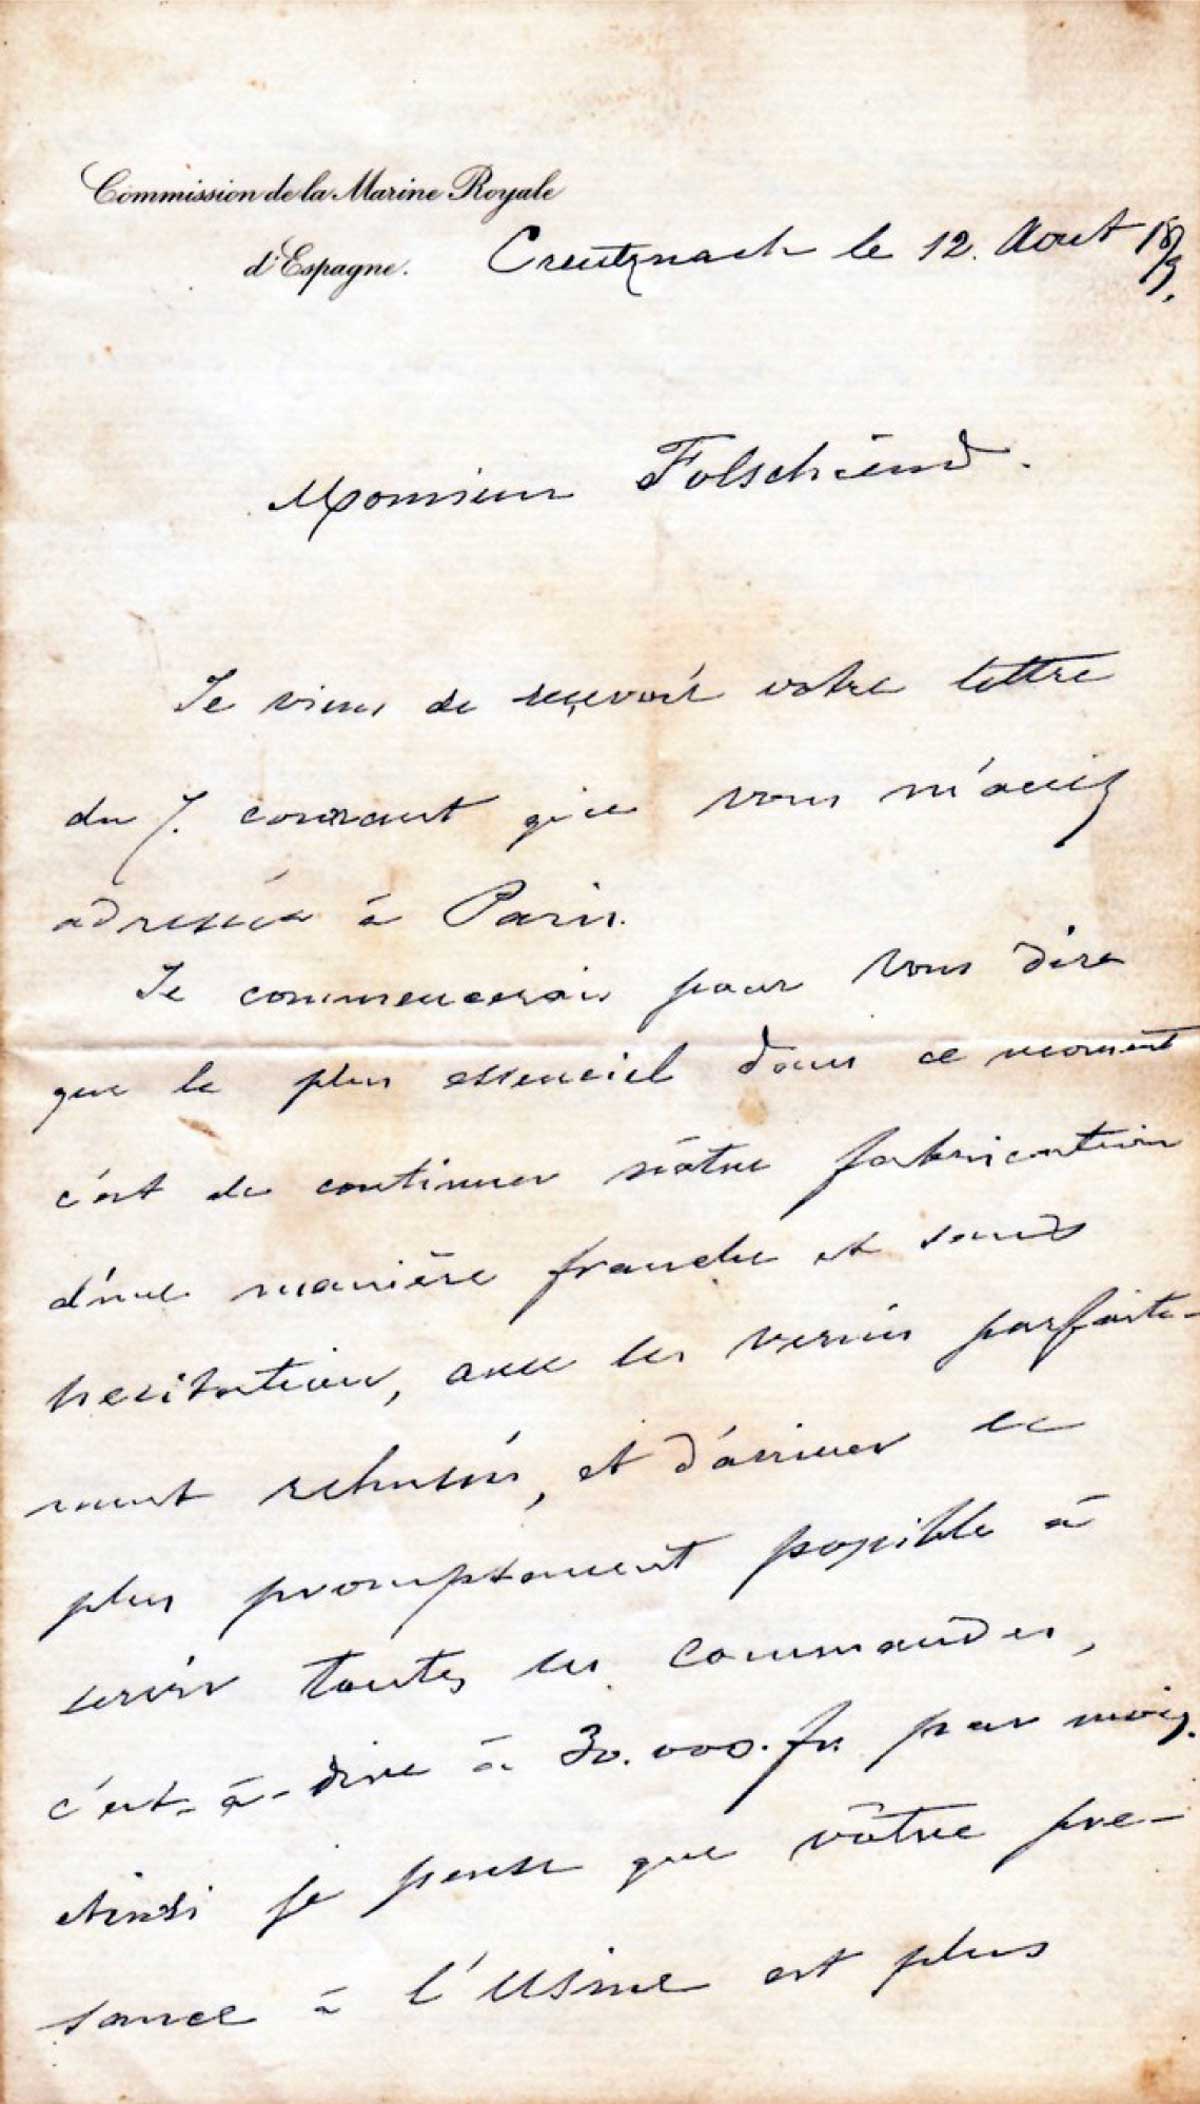 Commission de la Marine Royale
d'Espagne.
Creutznach le 12. Aout 18
Monsieur Folschiend.
Je viens de reçevoir votre lettre
du 7. courrant que vous m'aviez
adressée à Paris.
Je commencerais pour vous dire
que le plus essenciel dans ce moment
c'est de continuer nôtre fabrication
d'une manière franche et sans
hesitation, avec les vernis parfaite-
ment rehussis, et d'arriver le
plus promptement possible à
servir toutes les commandes,
c'est-à-dire à 30.000. fr. par mois.
Ainsi je pense que vôtre pre-
sance à l'Usine est plus